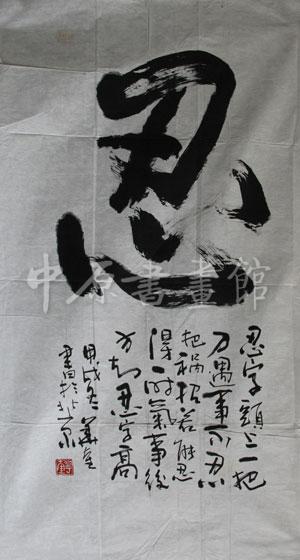 忍
忍字頭上一把
刀遇事不忍
把禍招若能忍
得一时氣事後
方知忍字高
甲戌冬
書於北京
中原書畫館